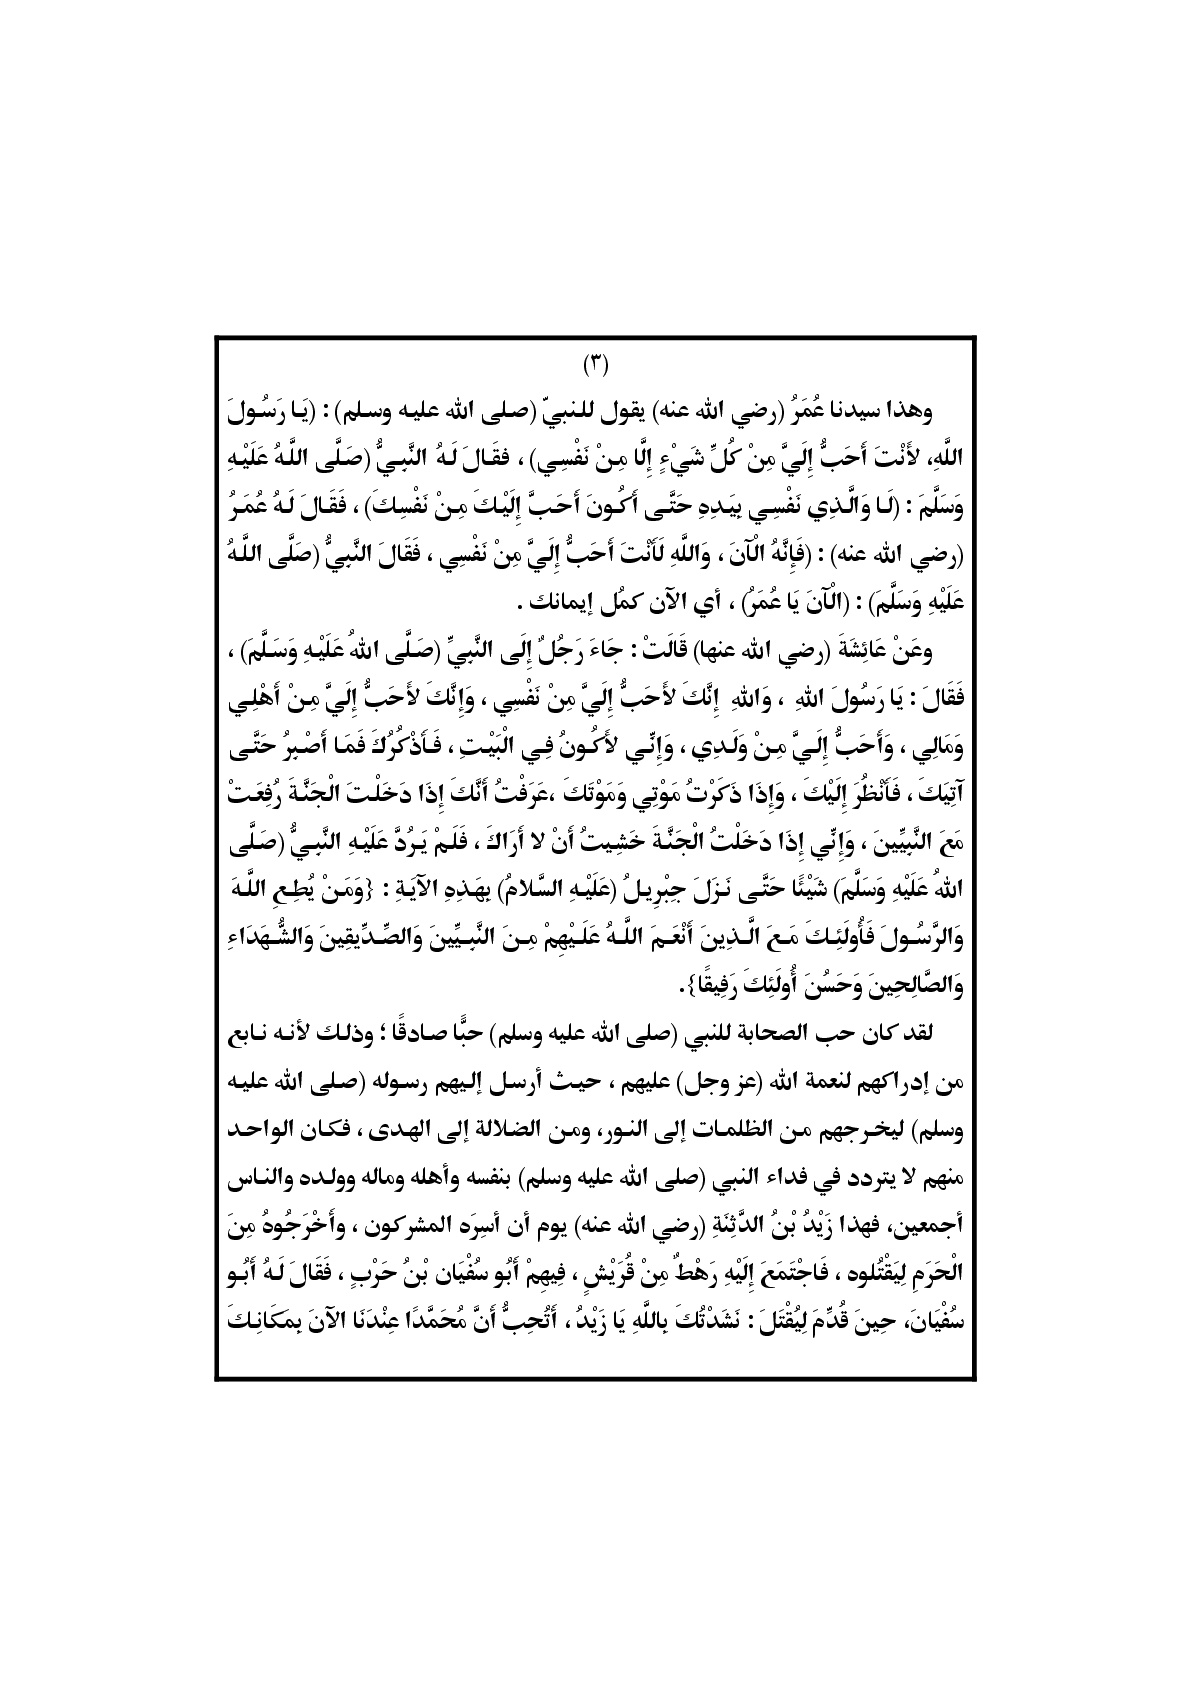 (٣)
وهذا سيدنا عُمَرُ (رضي الله عنه) يقول للنبيّ (صلى الله عليه وسلم) : (يَا رَسُولَ
اللَّهِ، لأَنْتَ أَحَبُّ إِلَيَّ مِنْ كُلِّ شَيْءٍ إِلَّا مِنْ نَفْسِي) ، فقَالَ لَهُ النَّبِيُّ (صَلَّى اللَّهُ عَلَيْهِ
وَسَلَّمَ : (لَا وَالَّذِي نَفْسِي بِيَدِهِ حَتَّى أَكُونَ أَحَبَّ إِلَيْكَ مِنْ نَفْسِكَ) ، فَقَالَ لَهُ عُمَرُ
(رضي الله عنه) : (فَإِنَّهُ الْآنَ ، وَاللَّهِ لَأَنْتَ أَحَبُّ إِلَيَّ مِنْ نَفْسِي ، فَقَالَ النَّبِيُّ (صَلَّى اللَّهُ
عَلَيْهِ وَسَلَّمَ) : (الْآنَ يَا عُمَرُ) ، أي الآن كمُل إيمانك .
وعَنْ عَائِشَةَ (رضي الله عنها) قَالَتْ : جَاءَ رَجُلٌ إِلَى النَّبِيِّ (صَلَّى اللهُ عَلَيْهِ وَسَلَّمَ) ،
فَقَالَ : يَا رَسُولَ اللهِ ، وَاللهِ إِنَّكَ لأَحَبُّ إِلَيَّ مِنْ نَفْسِي ، وَإِنَّكَ لأَحَبُّ إِلَيَّ مِنْ أَهْلِي
وَمَالِي ، وَأَحَبُّ إِلَيَّ مِنْ وَلَدِي ، وَإِنِّي لأَكُونُ فِي الْبَيْتِ ، فَأَذْكُرُكَ فَمَا أَصْبِرُ حَتَّى
آتِيَكَ ، فَأَنْظُرَ إِلَيْكَ ، وَإِذَا ذَكَرْتُ مَوْتِي وَمَوْتَكَ ،عَرَفْتُ أَنَّكَ إِذَا دَخَلْتَ الْجَنَّةَ رُفِعَتْ
مَعَ النَّبِيِّينَ ، وَإِنِّي إِذَا دَخَلْتُ الْجَنَّةَ خَشِيتُ أَنْ لا أَرَاكَ ، فَلَمْ يَرُدَّ عَلَيْهِ النَّبِيُّ (صَلَّى
اللهُ عَلَيْهِ وَسَلَّمَ) شَيْئًا حَتَّى نَزَلَ جِبْرِيلُ (عَلَيْهِ السَّلامُ) بِهَذِهِ الآيَةِ : {وَمَنْ يُطِعِ اللَّهَ
وَالرَّسُولَ فَأُولَئِكَ مَعَ الَّذِينَ أَنْعَمَ اللَّهُ عَلَيْهِمْ مِنَ النَّبِيِّينَ وَالصِّدِّيقِينَ وَالشُّهَدَاءِ
وَالصَّالِحِينَ وَحَسُنَ أُولَئِكَ رَفِيقًا}.
لقد كان حب الصحابة للنبي (صلى الله عليه وسلم) حبًّا صادقًا ؛ وذلك لأنه نابع
من إدراكهم لنعمة الله (عز وجل) عليهم ، حيث أرسل إليهم رسوله (صلى الله عليه
وسلم) ليخرجهم من الظلمات إلى النور، ومن الضلالة إلى الهدى ، فكان الواحد
منهم لا يتردد في فداء النبي (صلى الله عليه وسلم) بنفسه وأهله وماله وولده والناس
أجمعين، فهذا زَيْدُ بْنُ الدَّثِنَةِ (رضي الله عنه) يوم أن أسِرَه المشركون ، وأَخْرَجُوهُ مِنَ
الْحَرَمِ لِيَقْتُلوه ، فَاجْتَمَعَ إِلَيْهِ رَهْطٌ مِنْ قُرَيْشٍ ، فِيهِمْ أَبُو سُفْيَان بْنُ حَرْبٍ ، فَقَالَ لَهُ أَبُو
سُفْيَانَ، حِينَ قُدِّمَ لِيُقْتَلَ : نَشَدْتُكَ بِاللَّهِ يَا زَيْدُ ، أَتُحِبُّ أَنَّ مُحَمَّدًا عِنْدَنَا الآنَ بِمكَانِكَ